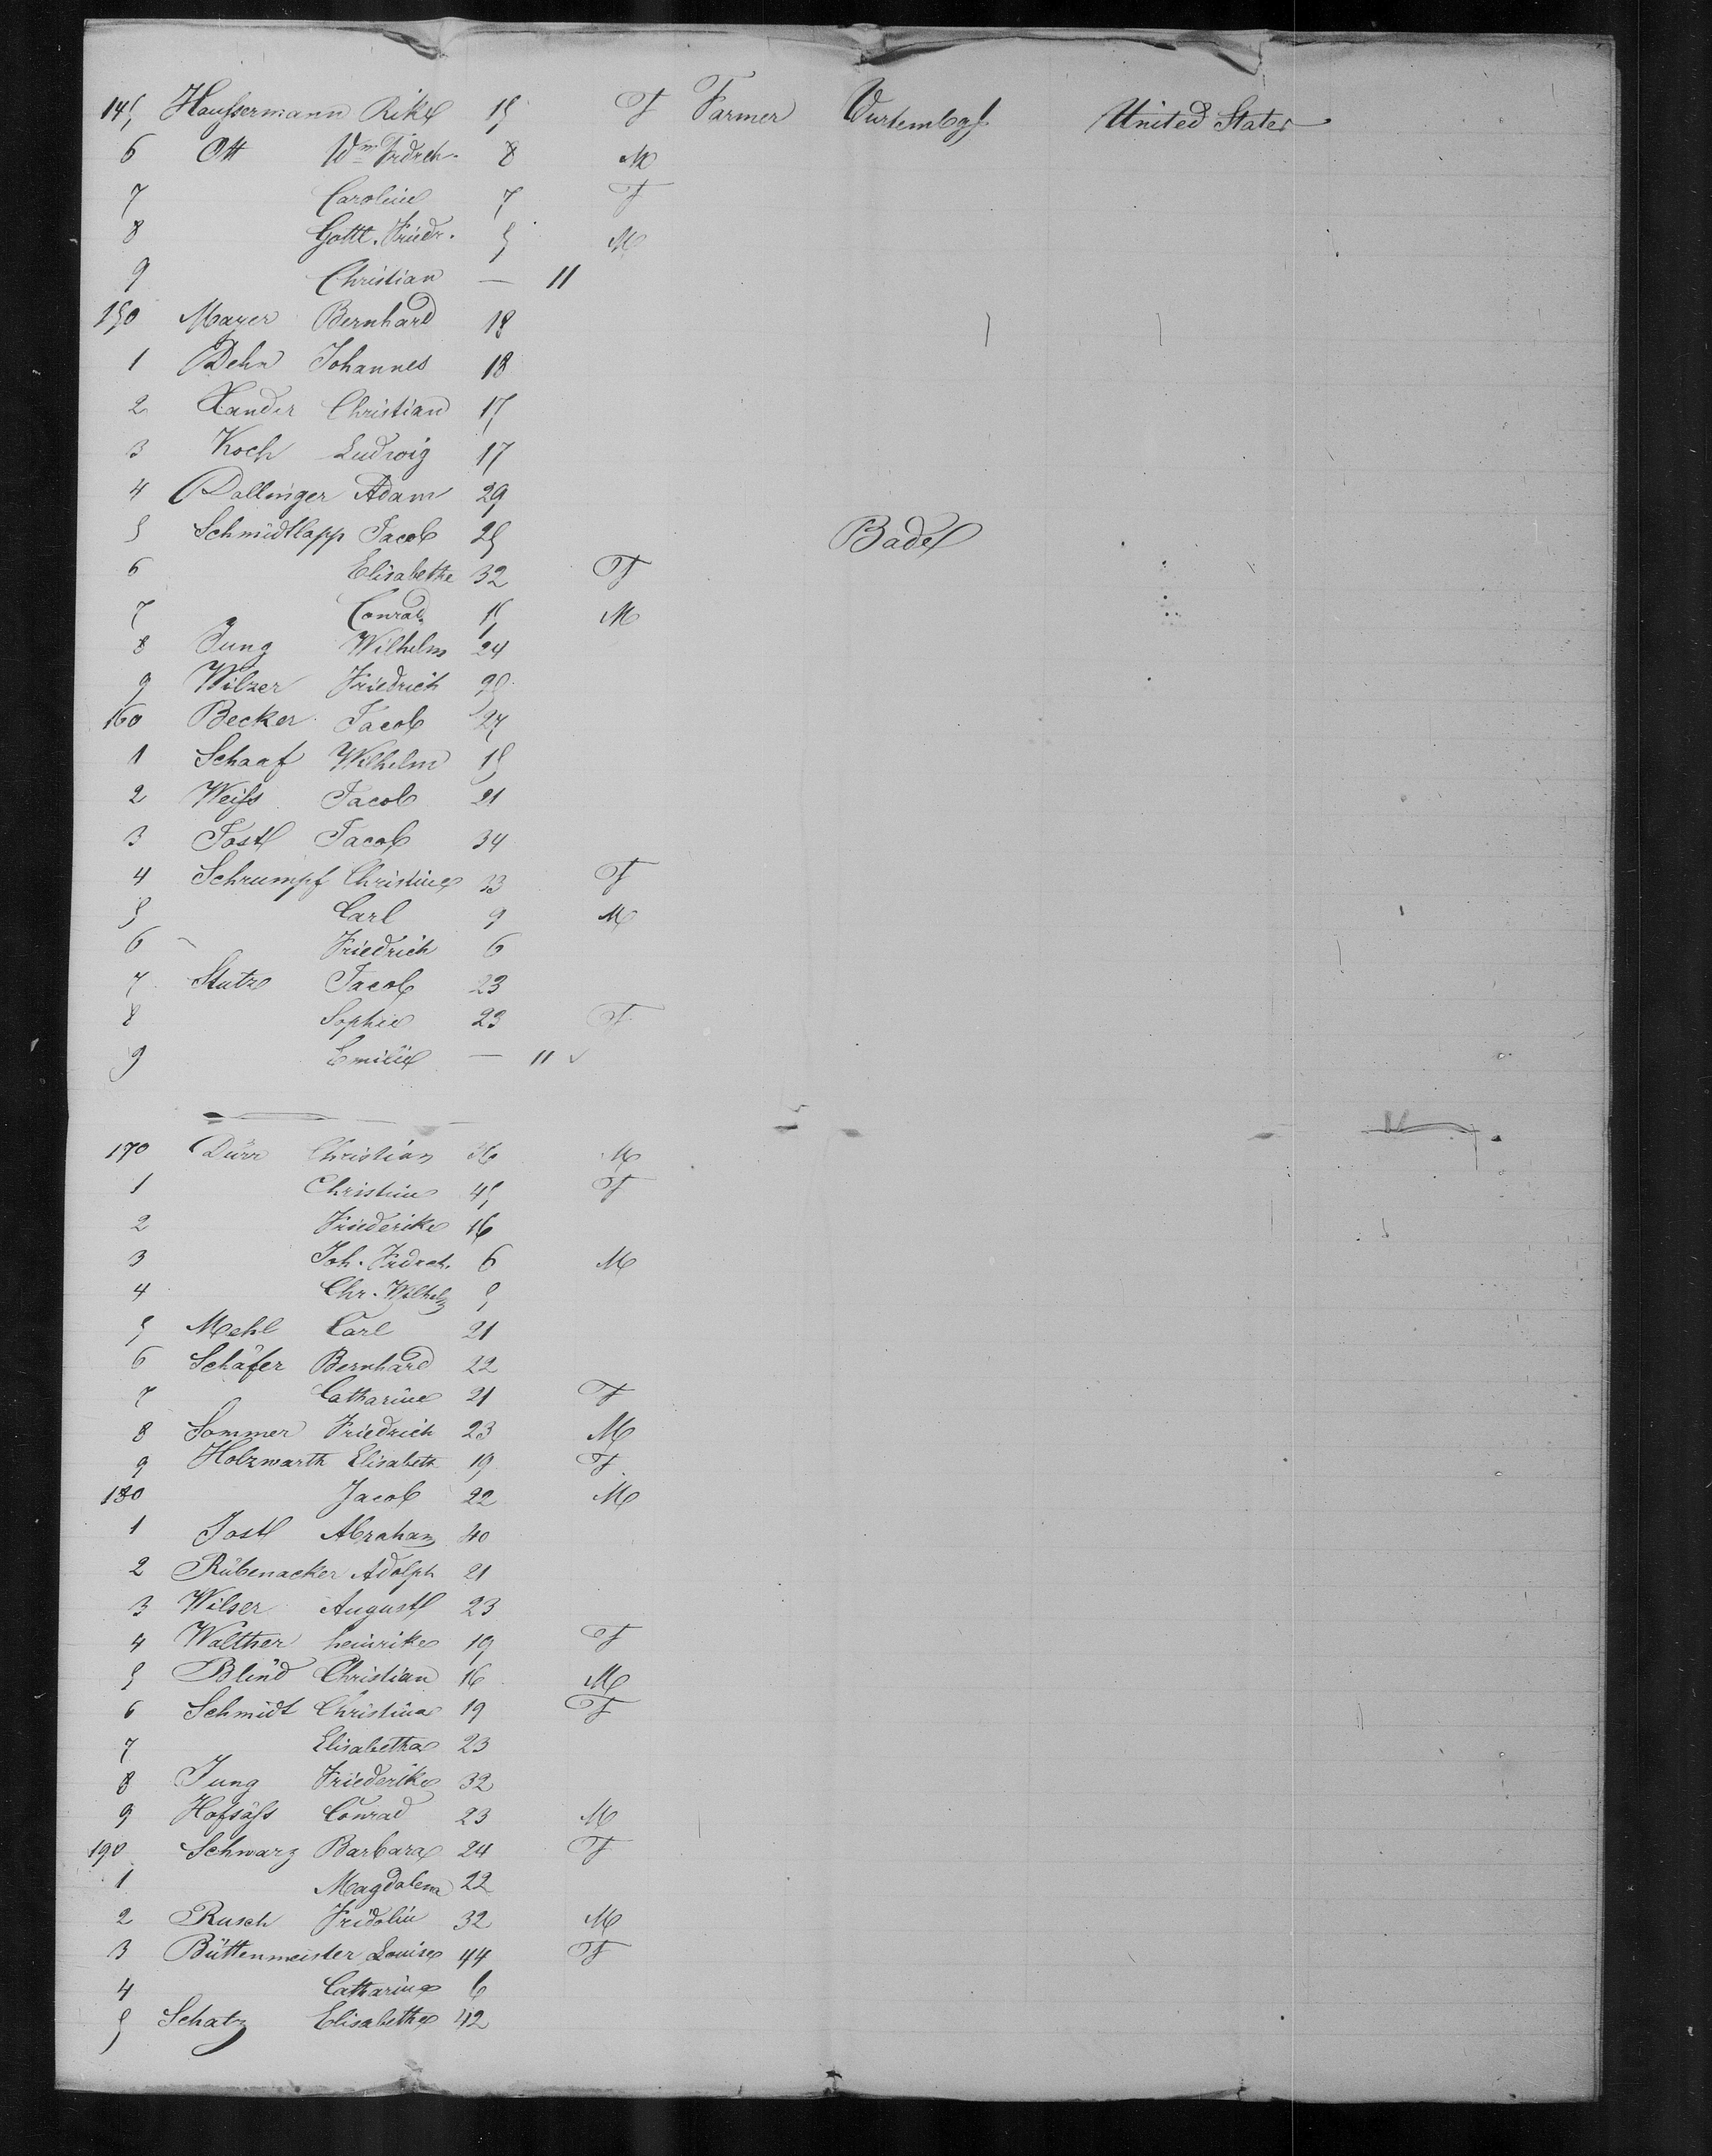 145 Haussermann Rike 15 F Farmer Wurtembg United States
6 Ott Wm Frdrch. 8 M
7 Caroline 7 F
8 Gottl. Friedr. 5 M
9 Christian — 11
150 Mayer Bernhard 18
1 Dehn Johannes 18
2 Xander Christian 17
3 Koch Ludwig 17
4 Dallinger Adam 29
5 Schmidtlapp Jacob 25 Baden
6 Elisabethe 32 F
7 Conrad M
8 Jung Wilhelm 24
9 Wilzer Friedrich
160 Becker Jacob 27
1 Schaaf Wilhelm 15
2 Weiss Jacob 21
3 Jost Jacob 34
4 Schrumpf Christine 33 F
5 Carl 9 M
6 Friedrich 6
7 Stutz Jacob 23
8 Sophie 23 F
9 Emilie — 11
170 Dürr Christian 36 M
1 Christine 45 F
2 Friederike 16
3 Joh. Frdrch. 6 M
4 Chr. Wilhelm 5
5 Mehl Carl 21
6 Schäfer Bernhard 22
7 Catharine 21 F
8 Sommer Friedrich 23 M
9 Holzwarth Elisabeth 19 F
180 Jacob 22 M
1 Jost Abraham 40
2 Rübenacker Adolph 21
3 Wilser August 23
4 Walther heinrike 19 F
5 Blind Christian 16 M
6 Schmidt Christina 19 F
7 Elisabetha 23
8 Jung Friederike 32
9 Hofsäss Conrad 23 M
190 Schwarz Barbara 24 F
1 Magdalena 22
2 Rusch Fridolin 32 M
3 Büttenmeister Louise 44 F
4 Catharine 6
5 Schatz Elisabethe 42